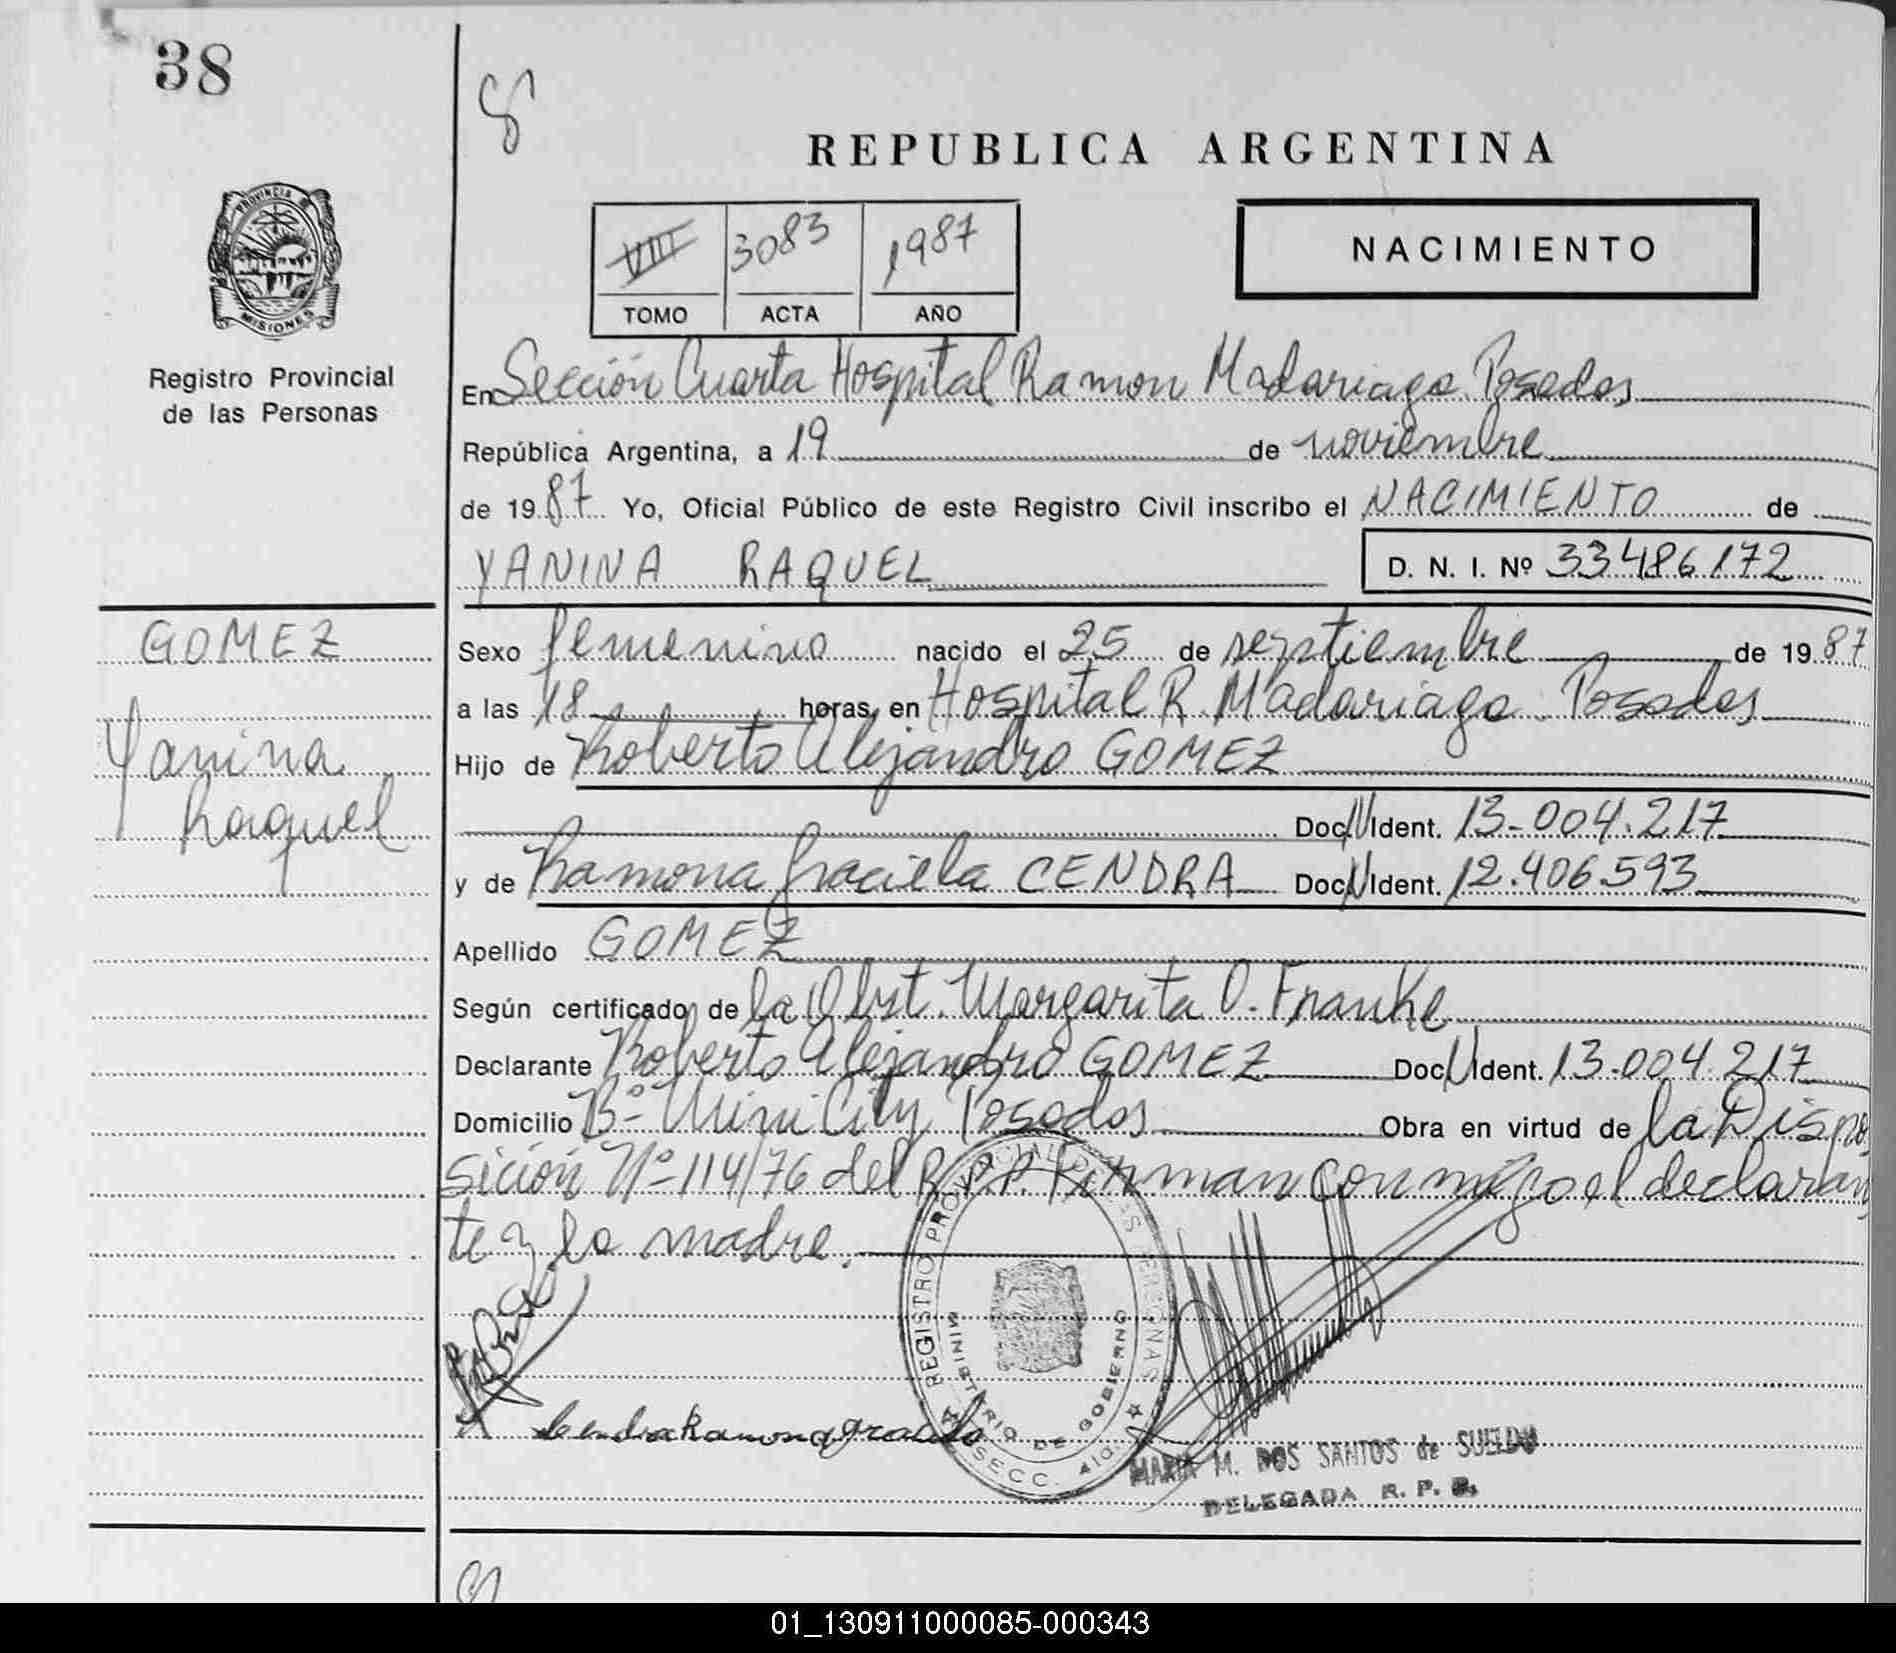 38
8
REPUBLICA ARGENTINA
PROVINCIA DE
MISIONES
VIII 3083 1987
TOMO ACTA AÑO
NACIMIENTO
Registro Provincial
de las Personas
En Sección Cuarta Hospital Ramon Madariaga Posadas
República Argentina, a 19 de noviembre
de 1987 Yo, Oficial Público de este Registro Civil inscribo el NACIMIENTO de
YANINA RAQUEL D. N. I. Nº 33486172
GOMEZ
Yanina
Raquel
Sexo femenino nacido el 25 de septiembre de 1987
a las 18 horas, en Hospital R. Madariaga Posadas
Hijo de Roberto Alejandro GOMEZ
Doc. N. Ident. 13-004.217
y de Ramona Graciela CENDRA Doc. N. Ident. 12.406.593
Apellido GOMEZ
Según certificado de la Obst. Margarita O. Franke
Declarante Roberto Alejandro GOMEZ Doc. N. Ident. 13.004.217
Domicilio Bº Mini City Posadas Obra en virtud de la Dispo
sición Nº 114/76 del R.P.P. Firman conmigo el declaran
te y la madre.
REGISTRO PROVINCIAL DE LAS PERSONAS
MINISTERIO DE GOBIERNO
SECC. 4
Cendra Ramona Graciela
MARIA M. DOS SANTOS de SUELDO
DELEGADA R. P. P.
01_130911000085-000343